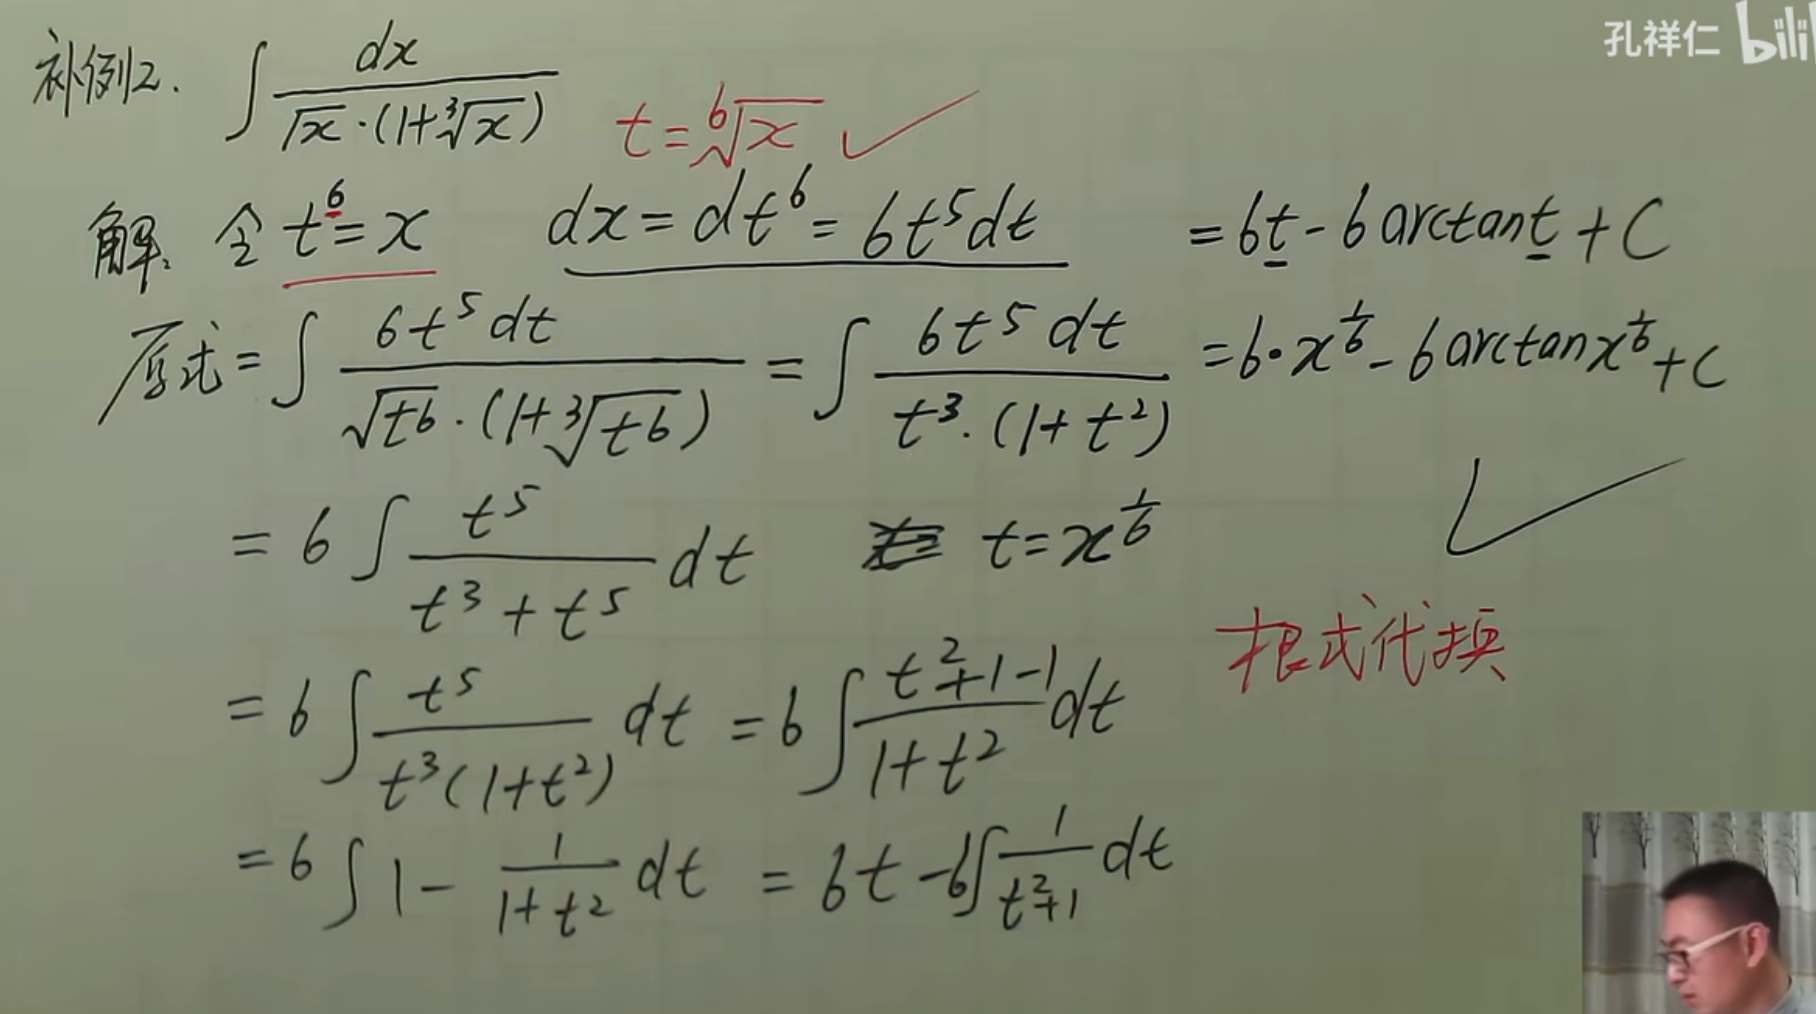 孔祥仁 bili
补例2. ∫ dx / (√x·(1+³√x))
t = ⁶√x ✓
解: 令 t⁶ = x dx = dt⁶ = 6t⁵dt
原式 = ∫ 6t⁵dt / (√t⁶·(1+³√t⁶)) = ∫ 6t⁵dt / (t³·(1+t²))
= 6 ∫ t⁵ / (t³+t⁵) dt t = x^(1/6)
= 6 ∫ t⁵ / (t³(1+t²)) dt = 6 ∫ (t²+1-1) / (1+t²) dt
= 6 ∫ 1 - 1/(1+t²) dt = 6t - 6∫ 1/(t²+1) dt
= 6t - 6 arctan t + C
= 6·x^(1/6) - 6 arctan x^(1/6) + C
✓
根式代换